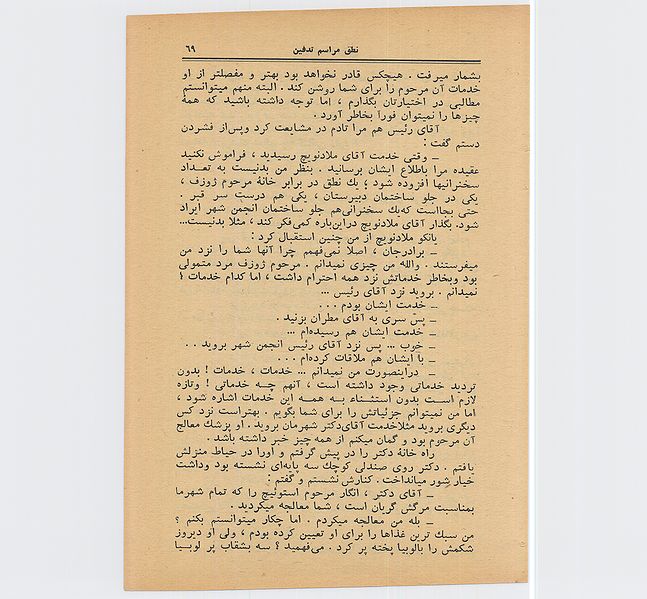 نطق مراسم تدفین ۶۹
بشمار میرفت . هیچکس قادر نخواهد بود بهتر و مفصلتر از او
خدمات آن مرحوم را برای شما روشن کند . البته منهم میتوانستم
مطالبی در اختیارتان بگذارم ، اما توجه داشته باشید که همهٔ
چیزها را نمیتوان فوراً بخاطر آورد .
آقای رئیس هم مرا تادم در مشایعت کرد وپس‌از فشردن
دستم گفت :
ــ وقتی خدمت آقای ملادنویچ رسیدید ، فراموش نکنید
عقیده مرا باطلاع ایشان برسانید . بنظر من بدنیست به تعداد
سخنرانیها افزوده شود ؛ یك نطق در برابر خانهٔ مرحوم ژوزف ،
یکی در جلو ساختمان دبیرستان ، یکی هم درست سر قبر .
حتی بجااست که‌یك سخنرانی‌هم جلو ساختمان انجمن شهر ایراد
شود. بگذار آقای ملادنویچ دراین‌باره کمی‌فکر کند ، مثلا بدنیست...
یانکو ملادنویچ از من چنین استقبال کرد :
ــ برادرجان ، اصلا نمی‌فهمم چرا آنها شما را نزد من
میفرستند . والله من چیزی نمیدانم . مرحوم ژوزف مرد متمولی
بود وبخاطر خدماتش نزد همه احترام داشت ، اما کدام خدمات ؟
نمیدانم . بروید نزد آقای رئیس ...
ــ خدمت ایشان بودم . . .
ــ پس سری به آقای مطران بزنید .
ــ خدمت ایشان هم رسیده‌ام ...
ــ خوب ... پس نزد آقای رئیس انجمن شهر بروید . .
ــ با ایشان هم ملاقات کرده‌ام . . .
ــ دراینصورت من نمیدانم ... خدمات ، خدمات ! بدون
تردید خدماتی وجود داشته است ، آنهم چه خدماتی ! وتازه
لازم است بدون استثناء به همه این خدمات اشاره شود ،
اما من نمیتوانم جزئیاتش را برای شما بگویم . بهتراست نزد کس
دیگری بروید مثلاخدمت آقای‌دکتر شهرمان بروید . او پزشك معالج
آن مرحوم بود و گمان میکنم از همه چیز خبر داشته باشد .
راه خانهٔ دکتر را در پیش گرفتم و اورا در حیاط منزلش
یافتم . دکتر روی صندلی کوچك سه پایه‌ای نشسته بود وداشت
خیار شور میانداخت . کنارش نشستم و گفتم :
ــ آقای دکتر ، انگار مرحوم استوئیچ را که تمام شهرما
بمناسبت مرگش گریان است ، شما معالجه میکردید .
ــ بله من معالجه میکردم . اما چکار میتوانستم بکنم ؟
من سبك ترین غذاها را برای او تعیین کرده بودم ، ولی او دیروز
شکمش را بالوبیا پخته پر کرد . می‌فهمید ؟ سه بشقاب پر لوبیا